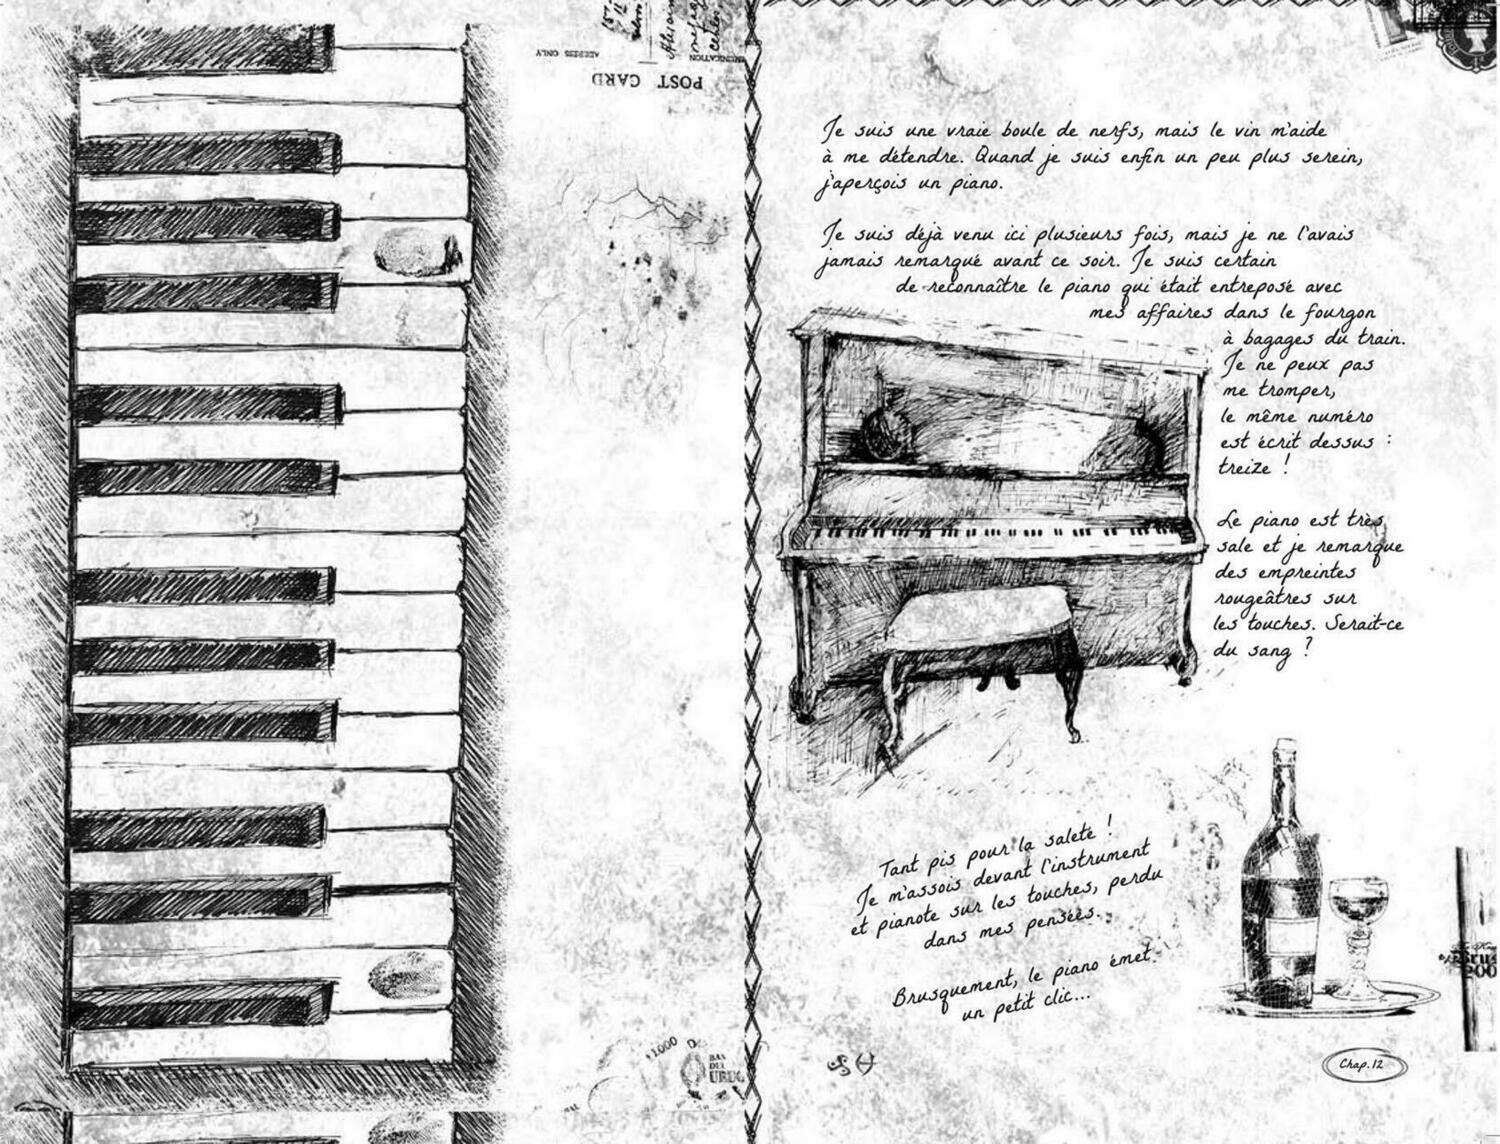 POST CARD
ADDRESS ONLY
Je suis une vraie boule de nerfs, mais le vin m'aide
à me détendre. Quand je suis enfin un peu plus serein,
j'aperçois un piano.
Je suis déjà venu ici plusieurs fois, mais je ne l'avais
jamais remarqué avant ce soir. Je suis certain
de reconnaître le piano qui était entreposé avec
mes affaires dans le fourgon
à bagages du train.
Je ne peux pas
me tromper,
le même numéro
est écrit dessus :
treize !
Le piano est très
sale et je remarque
des empreintes
rougeâtres sur
les touches. Serait-ce
du sang ?
Tant pis pour la saleté !
Je m'assois devant l'instrument
et pianote sur les touches, perdu
dans mes pensées.
Brusquement, le piano émet
un petit clic...
1000
Chap.12